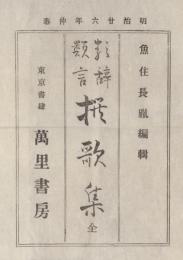 明治廿六年仲春
魚住長胤編輯
類辞
類言
撰歌集
全
東京書肆
萬里書房